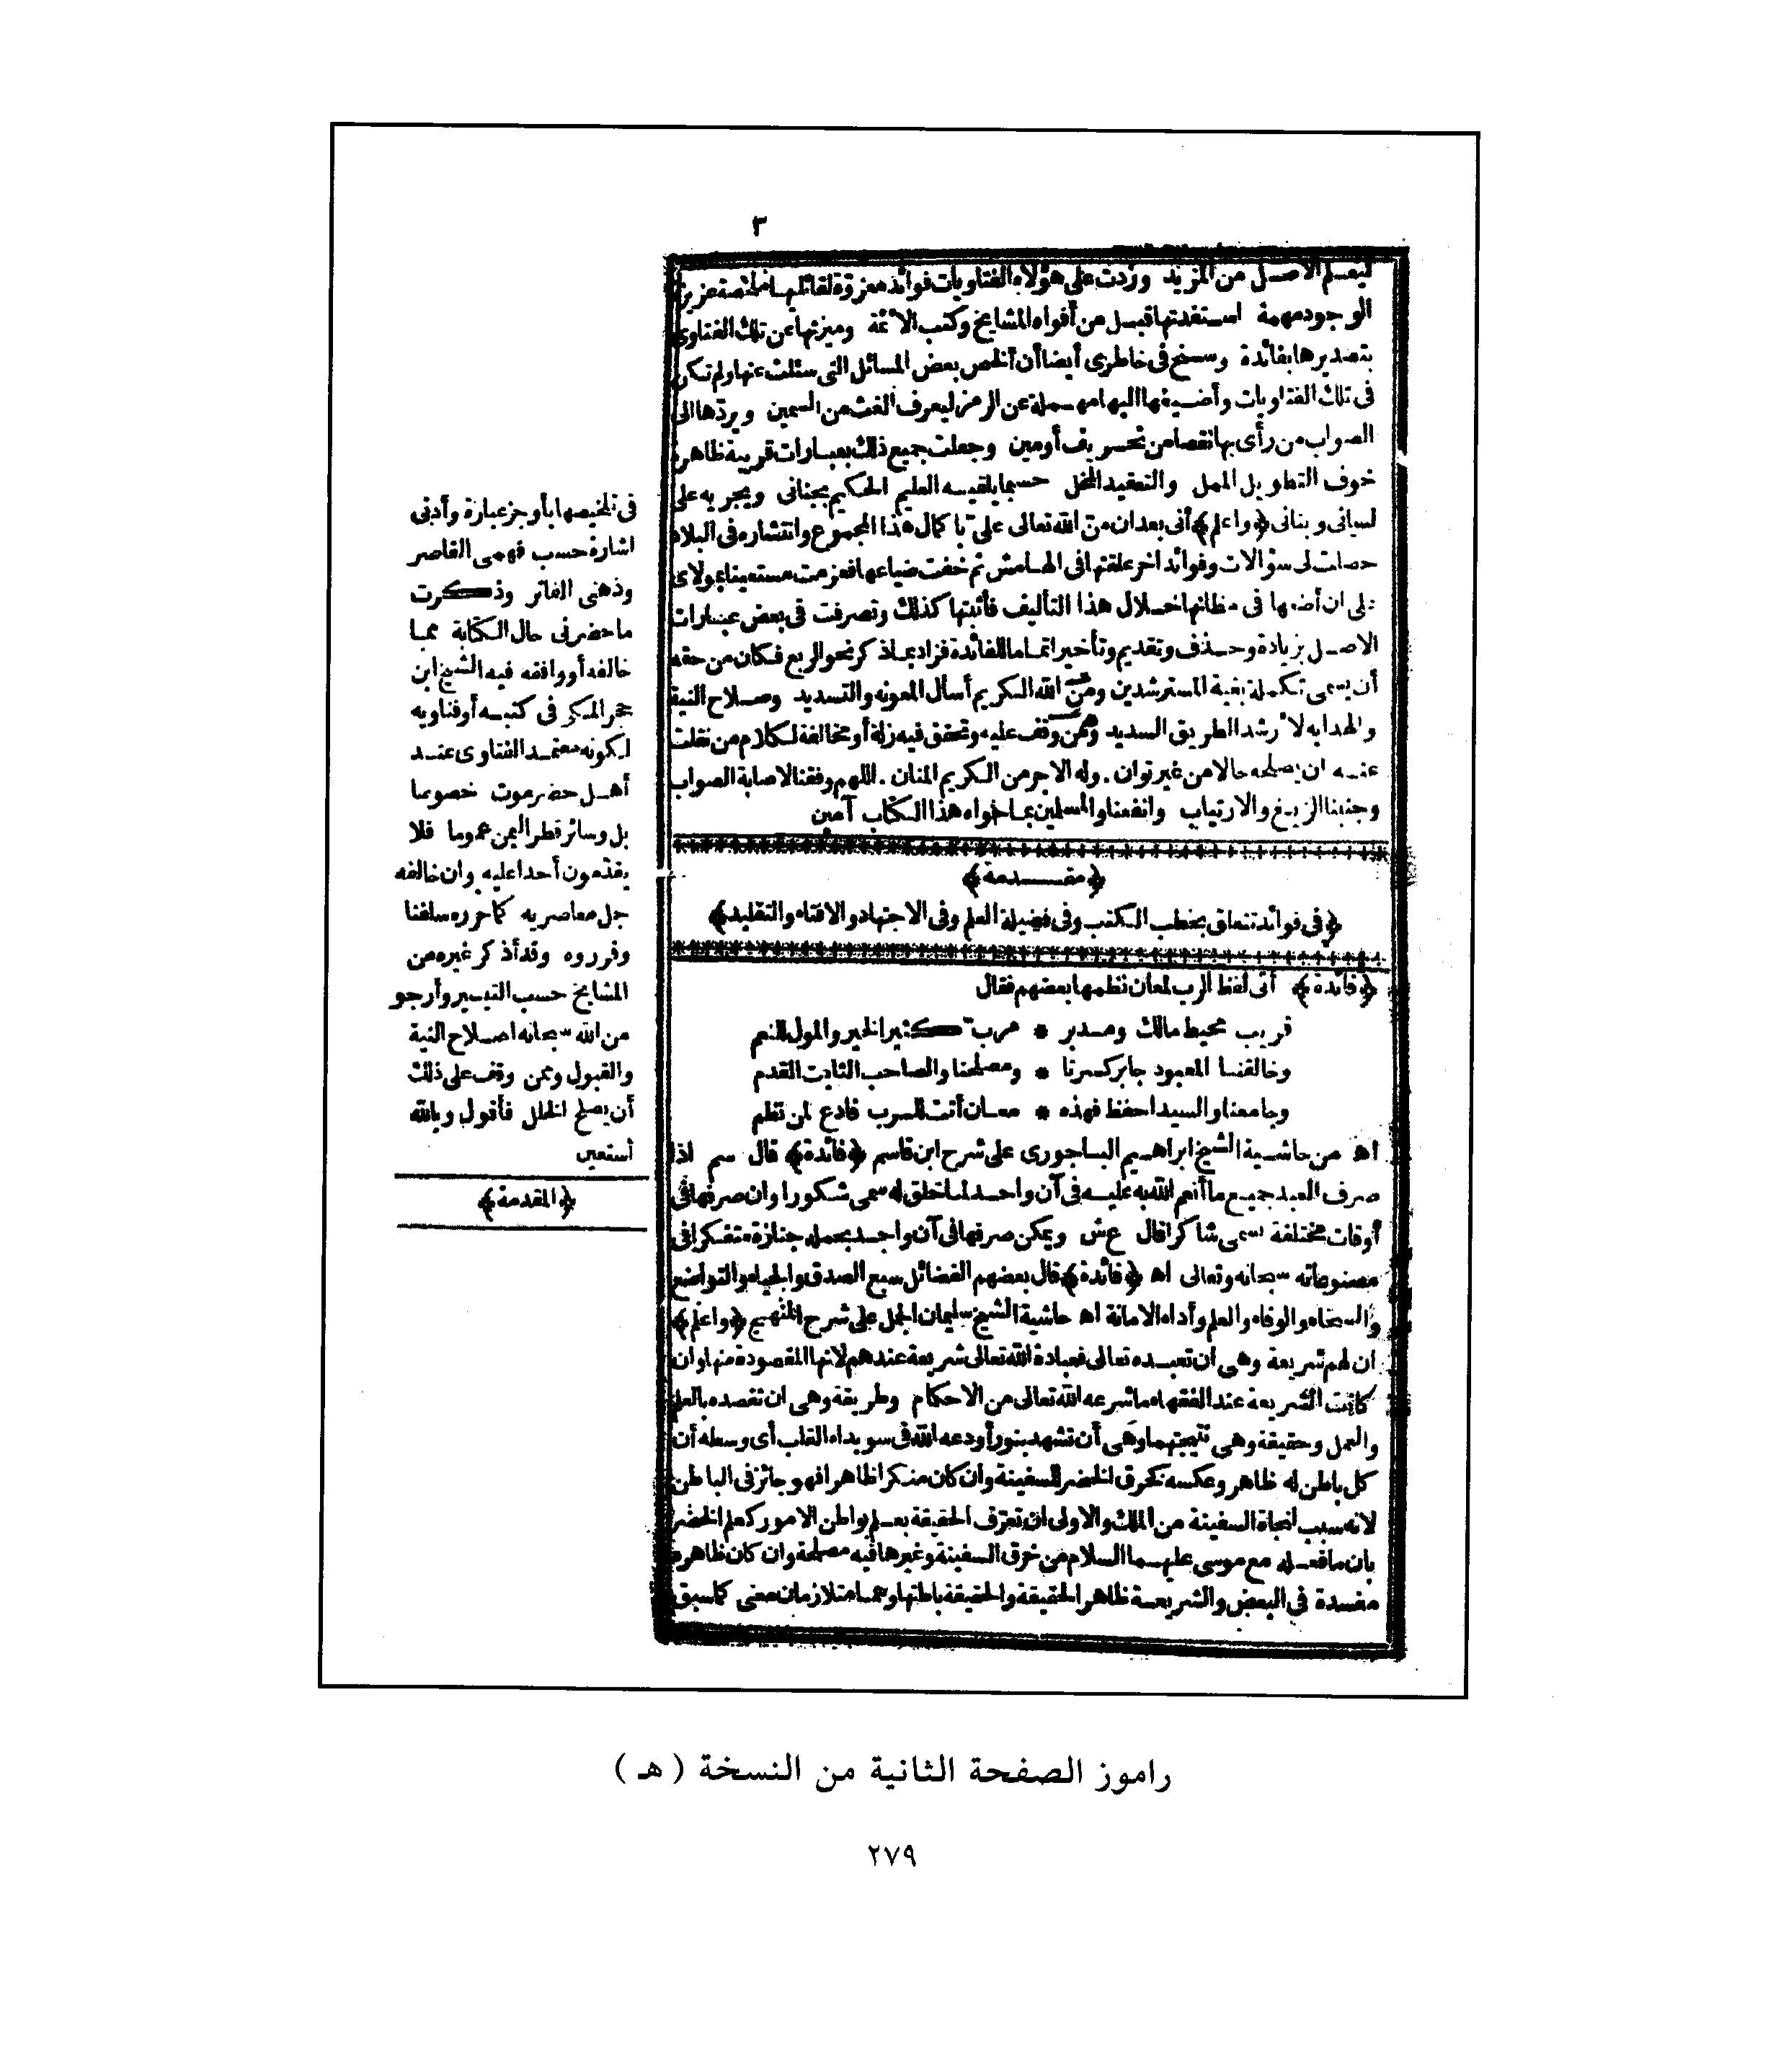 ٣
ليعلم الاصل من المزيد وزدت على هؤلاء الفتاويات فوائد معزوة لقائليها ملخصة عزيزة
الوجود مهمة استفدتها قبل من أفواه المشايخ وكتب الأئمة وميزتها عن تلك الفتاوى
بتصديرها بفائدة وسنح فى خاطرى أيضا أن ألخص بعض المسائل التى سئلت عنها ولم تكن
فى تلك الفتاويات وأضيفها اليها مهملة عن الرمز ليعرف الغث من السمين ويردّها الى
الصواب من رأى بها نقصا من تحريف أومين وجعلت جميع ذلك بعبارات قريبة ظاهرة
خوف التطويل الممل والتعقيد المخل حسبما يلقيه العليم الحكيم بجنانى ويجريه على
لسانى وبنانى ﴿واعلم﴾ أنى بعد ان منّ الله تعالى علىّ باكمال هذا المجموع وانتشاره فى البلاد
حصلت لى سؤالات وفوائد اخر علقتها فى الهامش ثم خفت ضياعها فعزمت مستعينا بمولاى
على ان أضعها فى مظانها خلال هذا التأليف فأثبتها كذلك وتصرفت فى بعض عبارات
الاصل بزيادة وحذف وتقديم وتأخير اتماما للفائدة فزاد بماذ كر نحو الربع فكان من حقه
أن يسمى تكملة بغية المسترشدين ومن الله الكريم أسأل المعونه والتسديد وصلاح النية
والهدايه لأرشد الطريق السديد وممن وقف عليه وتحقق فيه زلة أو مخالفة لكلام من نقلت
عنه ان يصلحه حالا من غير توان. وله الاجر من الكريم المنان. اللهم وفقنا لاصابة الصواب
وجنبنا الزيغ والارتياب وانفعنا والمسلمين بما حواه هذا الكتاب آمين
﴿مقدمة﴾
﴿فى فوائد تتعلق بخطب الكتب وفى فضيلة العلم وفى الاجتهاد والافتاء والتقليد﴾
﴿فائدة﴾ أتى لفظ الرب لمعان نظمها بعضهم فقال
قريب محيط مالك ومدبر * مرب كثير الخير والمول للنعم
وخالقنا المعبود جابر كسرنا * ومصلحنا والصاحب الثابت القدم
وجامعنا والسيد احفظ فهذه * معان أتت للرب فادع لمن نظم
اه من حاشية الشيخ ابراهيم الباجورى على شرح ابن قاسم ﴿فائدة﴾ قال سم اذا
صرف العبد جميع ما أنعم الله به عليه فى آن واحد لما خلق له سمى شكورا وان صرفها فى
أوقات مختلفة سمى شاكرا قال ع ش ويمكن صرفها فى آن واحد بحمله جنازة متفكرا فى
مصنوعاته سبحانه وتعالى اه ﴿فائدة﴾ قال بعضهم الفضائل سبع الصدق والحياء والتواضع
والسخاء والوفاء والعلم وأداء الامانة اه حاشية الشيخ سليمان الجمل على شرح المنهج ﴿واعلم﴾
ان لهم شريعة وهى ان تعبده تعالى فعبادة الله تعالى شريعة عندهم لانها المقصودة منها وان
كانت الشريعة عند الفقهاء ما شرعه الله تعالى من الاحكام وطريقة وهى ان تقصده بالعلم
والعمل وحقيقة وهى نتيجتهما وهى أن تشهد بنور أودعه الله فى سويداء القلب أى وسطه أن
كل باطن له ظاهر وعكسه كخرق الخضر السفينة وان كان منكرا ظاهرا فهو جائز فى الباطن
لانه سبب لنجاة السفينة من الملك والاولى ان تعرّف الحقيقة بعلم بواطن الامور كعلم الخضر
بان ما فعله مع موسى عليهما السلام من خرق السفينة وغيرها فيه مصلحة وان كان ظاهره
مفسدة فى البعض والشريعة ظاهر الحقيقة والحقيقة باطنها وهما متلازمان معنى كما سبق
فى تلخيصها بأوجز عبارة وأدنى
اشارة حسب فهمى القاصر
وذهنى الفاتر وذكرت
ما حضرنى حال الكتابة مما
خالفه أو وافقه فيه الشيخ ابن
حجر المكى فى كتبه أو فتاويه
لكونه معتمد الفتاوى عند
أهل حضرموت خصوصا
بل وسائر قطر اليمن عموما فلا
يقدّمون أحدا عليه وان خالفه
جل معاصريه كما حرره سلفنا
وقرروه وقد أذكر غيره من
المشايخ حسب التيسير وأرجو
من الله سبحانه اصلاح النية
والقبول وممن وقف على ذلك
أن يصلح الخلل فأقول وبالله
أستعين
﴿المقدمة﴾
راموز الصفحة الثانية من النسخة ( هـ )
٢٧٩